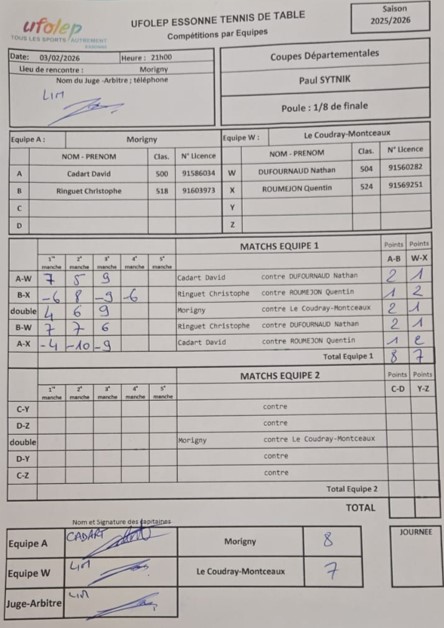 ufolep
TOUS LES SPORTS AUTREMENT
ESSONNE
UFOLEP ESSONNE TENNIS DE TABLE
Compétitions par Equipes
Saison
2025/2026
Date: 03/02/2026 Heure : 21h00
Lieu de rencontre : Morigny
Nom du Juge -Arbitre ; téléphone
LIM
Coupes Départementales
Paul SYTNIK
Poule : 1/8 de finale
Equipe A : Morigny Equipe W : Le Coudray-Montceaux
NOM - PRENOM Clas. N° Licence NOM - PRENOM Clas. N° Licence
A Cadart David 500 91586034 W DUFOURNAUD Nathan 504 91560282
B Ringuet Christophe 518 91603973 X ROUMEJON Quentin 524 91569251
C Y
D Z
MATCHS EQUIPE 1 Points Points
1° manche 2° manche 3° manche 4° manche 5° manche A-B W-X
A-W 7 5 9 Cadart David contre DUFOURNAUD Nathan 2 1
B-X -6 8 -9 -6 Ringuet Christophe contre ROUMEJON Quentin 1 2
double 4 6 9 Morigny contre Le Coudray-Montceaux 2 1
B-W 7 7 6 Ringuet Christophe contre DUFOURNAUD Nathan 2 1
A-X -4 -10 -9 Cadart David contre ROUMEJON Quentin 1 2
Total Equipe 1 8 7
MATCHS EQUIPE 2 Points Points
1° manche 2° manche 3° manche 4° manche 5° manche C-D Y-Z
C-Y contre
D-Z contre
double Morigny contre Le Coudray-Montceaux
D-Y contre
C-Z contre
Total Equipe 2
TOTAL
Nom et Signature des Capitaines
Equipe A CADART Morigny 8
JOURNEE
Equipe W LIM Le Coudray-Montceaux 7
Juge-Arbitre LIM